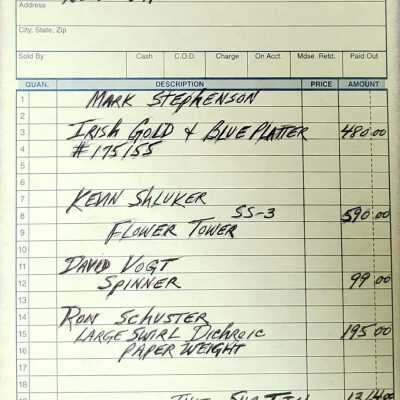 Address
City, State, Zip
Sold By Cash C.O.D. Charge On Acct. Mdse. Retd. Paid Out
QUAN. DESCRIPTION PRICE AMOUNT
1 MARK STEPHENSON
2
3 IRISH GOLD & BLUE PLATTER 480 00
4 #175155
5
6
7 KEVIN SHLUKER
8 SS-3 590 00
9 FLOWER TOWER
10
11 DAVID VOGT
12 SPINNER 99 00
13
14 RON SCHUSTER
15 LARGE SWIRL DICHROIC 195 00
16 PAPER WEIGHT
17
18